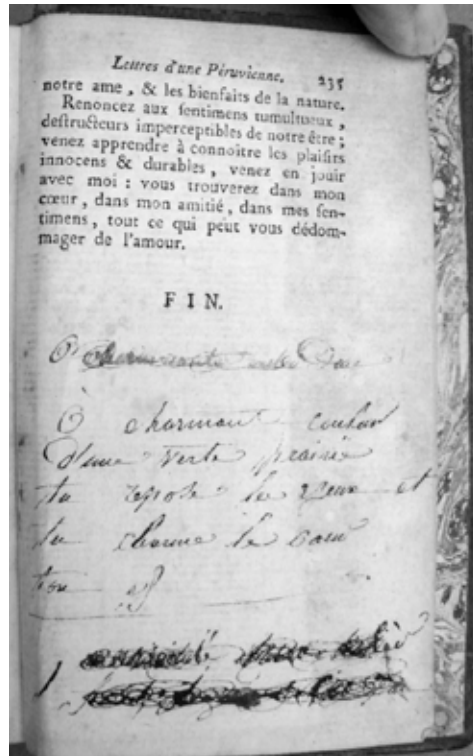 Lettres d'une Péruvienne. 235
notre ame, & les bienfaits de la nature.
Renoncez aux sentimens tumultueux,
destructeurs imperceptibles de notre être ;
venez apprendre à connoître les plaisirs
innocens & durables, venez en jouir
avec moi : vous trouverez dans mon
cœur, dans mon amitié, dans mes sen-
timens, tout ce qui peut vous dédom-
mager de l'amour.
FIN.
O charmante
O charmant
d'une verte prairie
tu repose la et
tu charme le